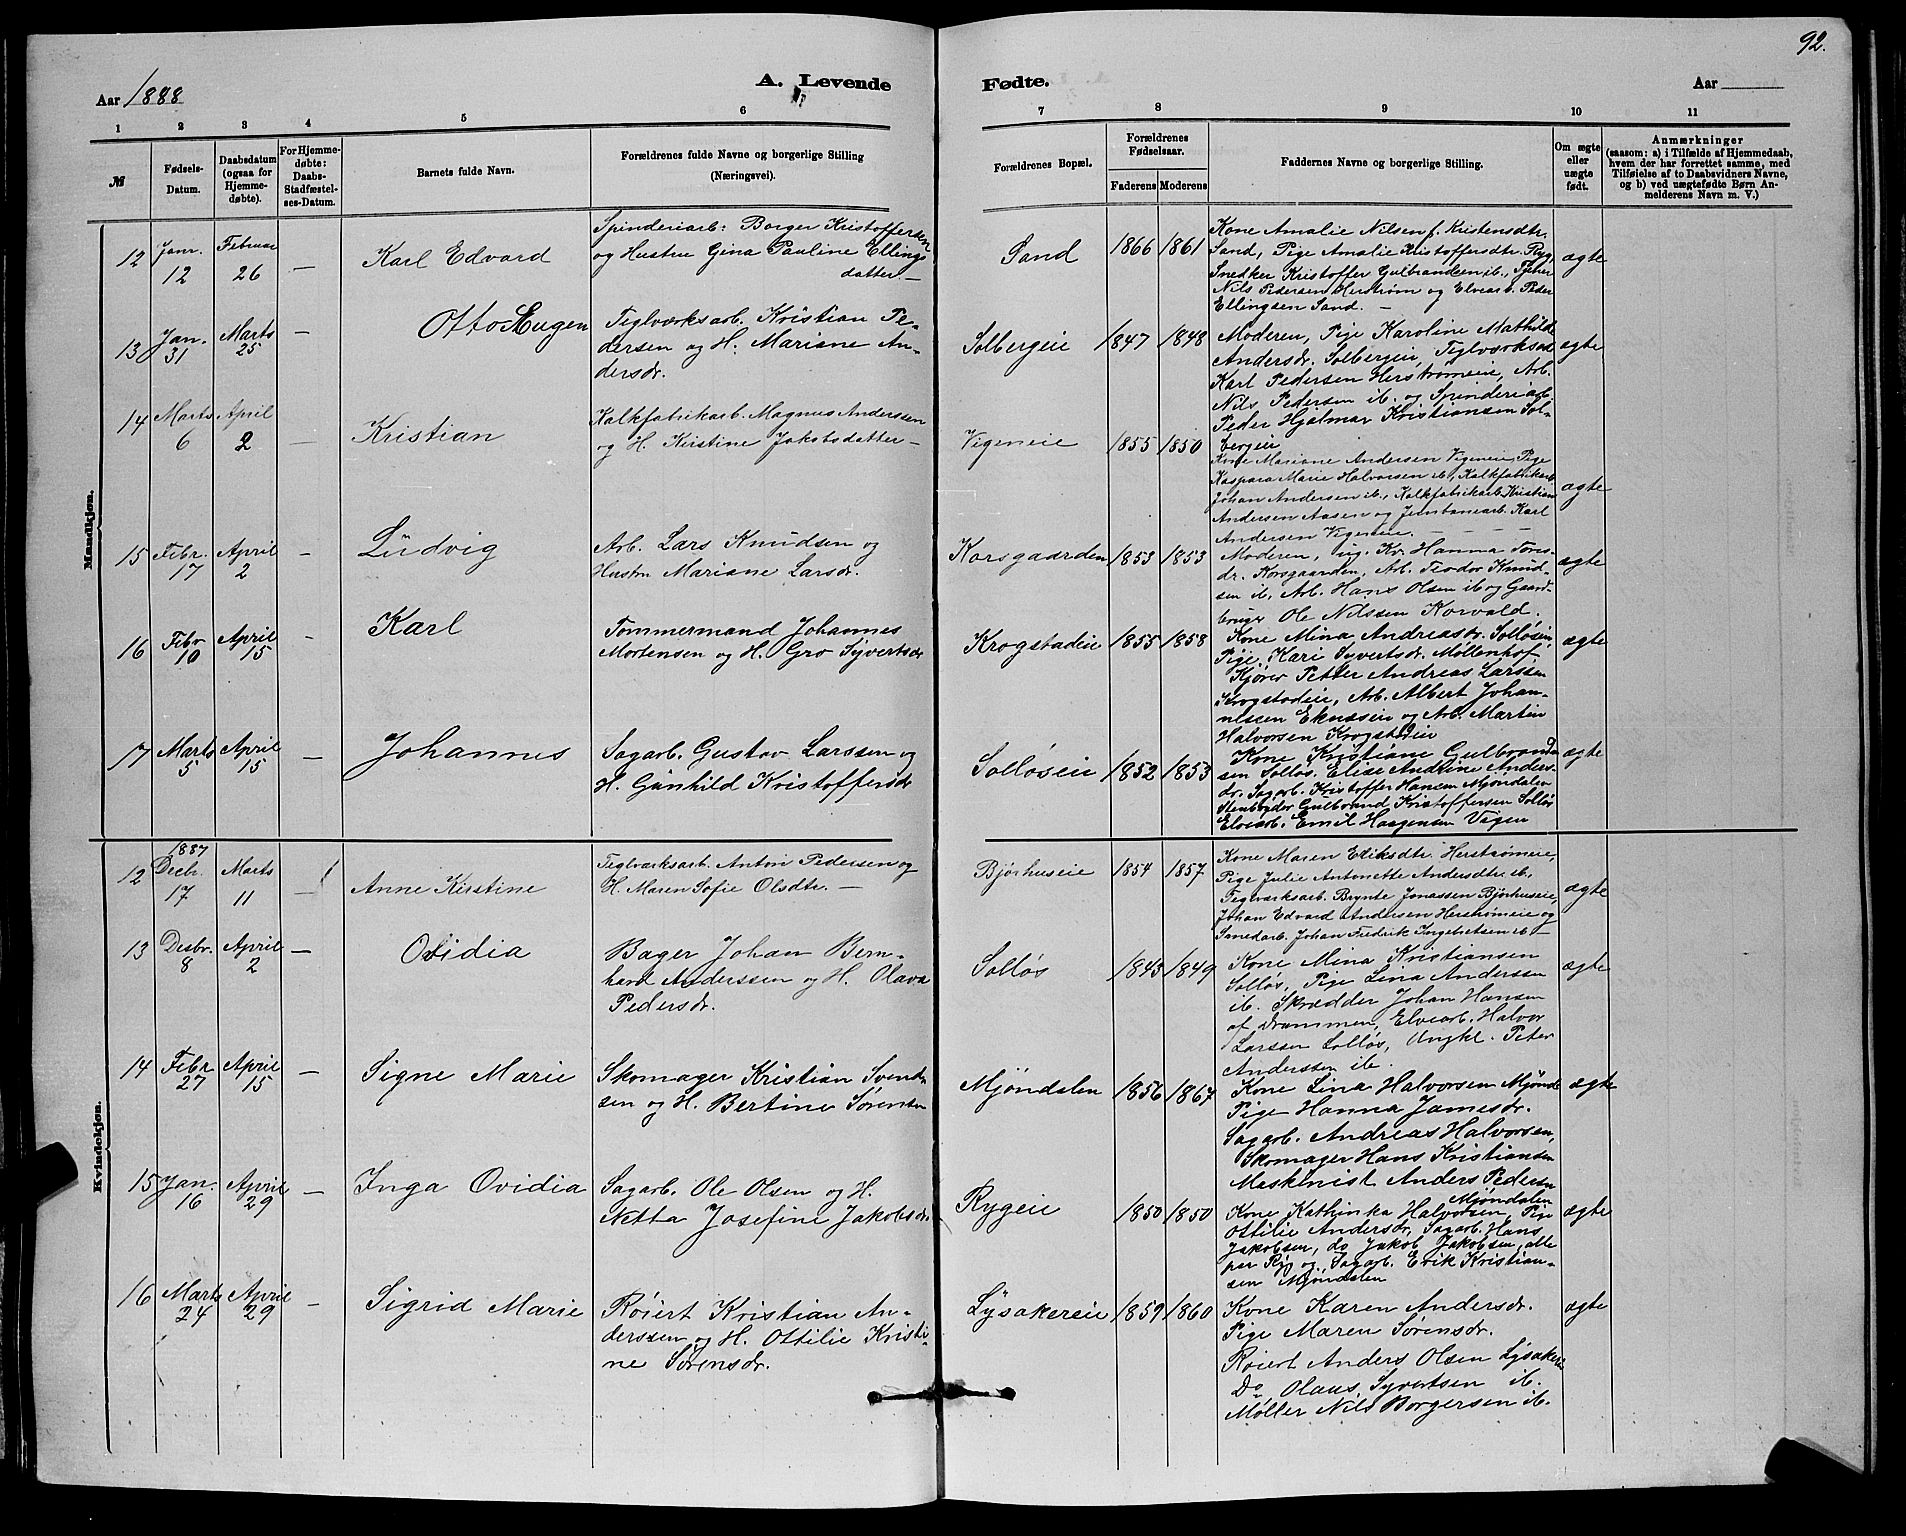 92.
Aar 1888
A. Levende
Fødte.
Aar
1 2 3 4 5 6
7 8 9 10 11
№
Fødsels-Datum.
Daabsdatum (ogsaa for Hjemmedøbte).
For Hjemmedøbte: Daabs-Stadfæstelses-Datum.
Barnets fulde Navn.
Forældrenes fulde Navne og borgerlige Stilling
(Næringsvei).
Forældrenes Bopæl.
Forældrenes Fødselsaar.
Faderens Moderens
Faddernes Navne og borgerlige Stilling.
Om ægte eller uægte født.
Anmærkninger
(saasom: a) i Tilfælde af Hjemmedaab,
hvem der har forrettet samme, med
Tilføielse af to Daabsvidners Navne,
og b) ved uægtefødte Børn Anmelderens Navn m. V.)
Mandkjøn.
12 Janr. 12 Februar 26 — Karl Edvard
Spinderiarb: Borger Kristoffersen
og Hustru Gina Pauline Ellings
datter. —
Sand 1866 1861
Kone Amalie Nilsen f. Kristensdtr.
Sand, Pige Amalie Kristoffersdtr. Ryg
Snedker Kristoffer Gulbrandsen ib.,
Nils Pedersen Herstrøm og Elvearb. Peder
Ellingsen Sand. —
ægte
13 Jan. 31 Marts 25 — Otto Eugen
Teglværksarb. Kristian Pe-
dersen og H. Mariane An-
dersdr.
Solbergeie 1847 1848
Moderen, Pige Karoline Mathilde
Andersdr. Solbergeie, Teglværksarb
Karl Pedersen Herstrømeie, Arb.
Nils Pedersen ib. og Spinderiarb.
Peder Hjalmar Kristiansen Sol-
bergeie
ægte
14 Marts 6 April 2 — Kristian
Kalkfabrikarb. Magnus Anderssen
og H. Kirstine Jakobsdatter —
Vigeneie 1855 1850
Kone Mariane Andersen Vigeneie, Pige
Kaspara Marie Halvorsen ib., Kalkfabrikarb
Johan Andersen ib., Kalkfabrikarb. Kristian
Andersen Aasen og Jernbanearb. Karl
Andersen Vigeneie. —
ægte
15 Febr. 17 April 2 — Ludvig
Arb. Lars Knudsen og
Hustru Mariane Larsdr.
Korsgaarden 1853 1853
Moderen, ug. Kv. Hanna Tores-
dr. Korsgaarden, Arb. Teodor Knud-
sen ib, Arb. Hans Olsen ib og Gaard-
bruger Ole Nilssen Korvald.
ægte
16 Febr 10 April 15 — Karl
Tømmermand Johannes
Mortensen og H. Gro Syvertsdr
Krogstadeie 1855 1858
Kone Mina Andreasdr. Solløsein
Pige Kari Syvertsdr. Møllenhof
Kjører Petter Andreas Larssen
Krogstadeie, Arb. Albert Johan-
nessen Eknesseie og Arb. Martin
Halvorsen Krogstadeie
ægte
17 Marts 5 April 15 — Johannes
Sagarb. Gustav Larssen og
H. Gunhild Kristoffersdr
Solløseie 1852 1853
Kone Kristiane Gulbrand-
sen Solløs. Elise Andrine Anders-
dr. Sagarb. Kristoffer Hansen Mjøndalen
Stenbryder Gulbrand Kristoffersen Solløs
Elvearb. Emil Haagensen Vigen
ægte
Kvindekjøn.
12 1887 Decb. 17 Marts 11 — Anne Kirstine
Teglværksarb. Anton Pedersen og
H. Maren Sofie Olsdtr. —
Bjørhuseie 1854 1857
Kone Maren Eriksdtr. Herstrømeie,
Pige Julie Antonette Andersdtr. ib,
Teglværksarb. Brynte Jonassen Bjørhuseie,
Johan Edvard Andersen Herstrømeie og
Smedarb. Johan Fredrik Ingebretsen ib —
ægte
13 Desbr. 8 April 2 — Ovidia
Bager Johan Bern-
hard Anderssen og H. Olava
Pedersdr.
Solløs 1843 1849
Kone Mina Kristiansen
Solløs, Pige Lina Andersen
ib. Skrædder Johan Hansen
af Drammen, Elvearb. Halvor
Larssen Solløs, Ungkl. Peter
Anderssen ib.
ægte
14 Febr 27 April 15 — Signe Marie
Skomager Kristian Svend-
sen og H. Bertine Sørensdr
Mjøndalen 1856 1867
Kone Lina Halvorsen Mjønd
Pige Hanna Jamesdr.
Sagarb. Andreas Halvorsen,
Skomager Hans Kristiansen
Maskinist Anders Pedersen
Mjøndalen
ægte
15 Jan. 16 April 29 — Inga Ovidia
Sagarb. Ole Olsen og H.
Netta Josefine Jakobsdr
Rygeie 1850 1850
Kone Kathinka Halvorsen, Pige
Ottilie Andersdr, Sagarb. Hans
Jakobsen, do Jakob Jakobsen, alle
paa Ryg og, Sagarb. Erik Kristian-
sen Mjøndalen
ægte
16 Marts 24 April 29 — Sigrid Marie
Røiert Kristian An-
derssen og H. Ottilie Kristi-
ne Sørensdr.
Lysakereie 1859 1860
Kone Karen Andersdr.
Pige Maren Sørensdr.
Røiert Anders Olsen Lysaker
Do Olaus Syvertsen ib.
Møller Nils Borgersen ib.
ægte